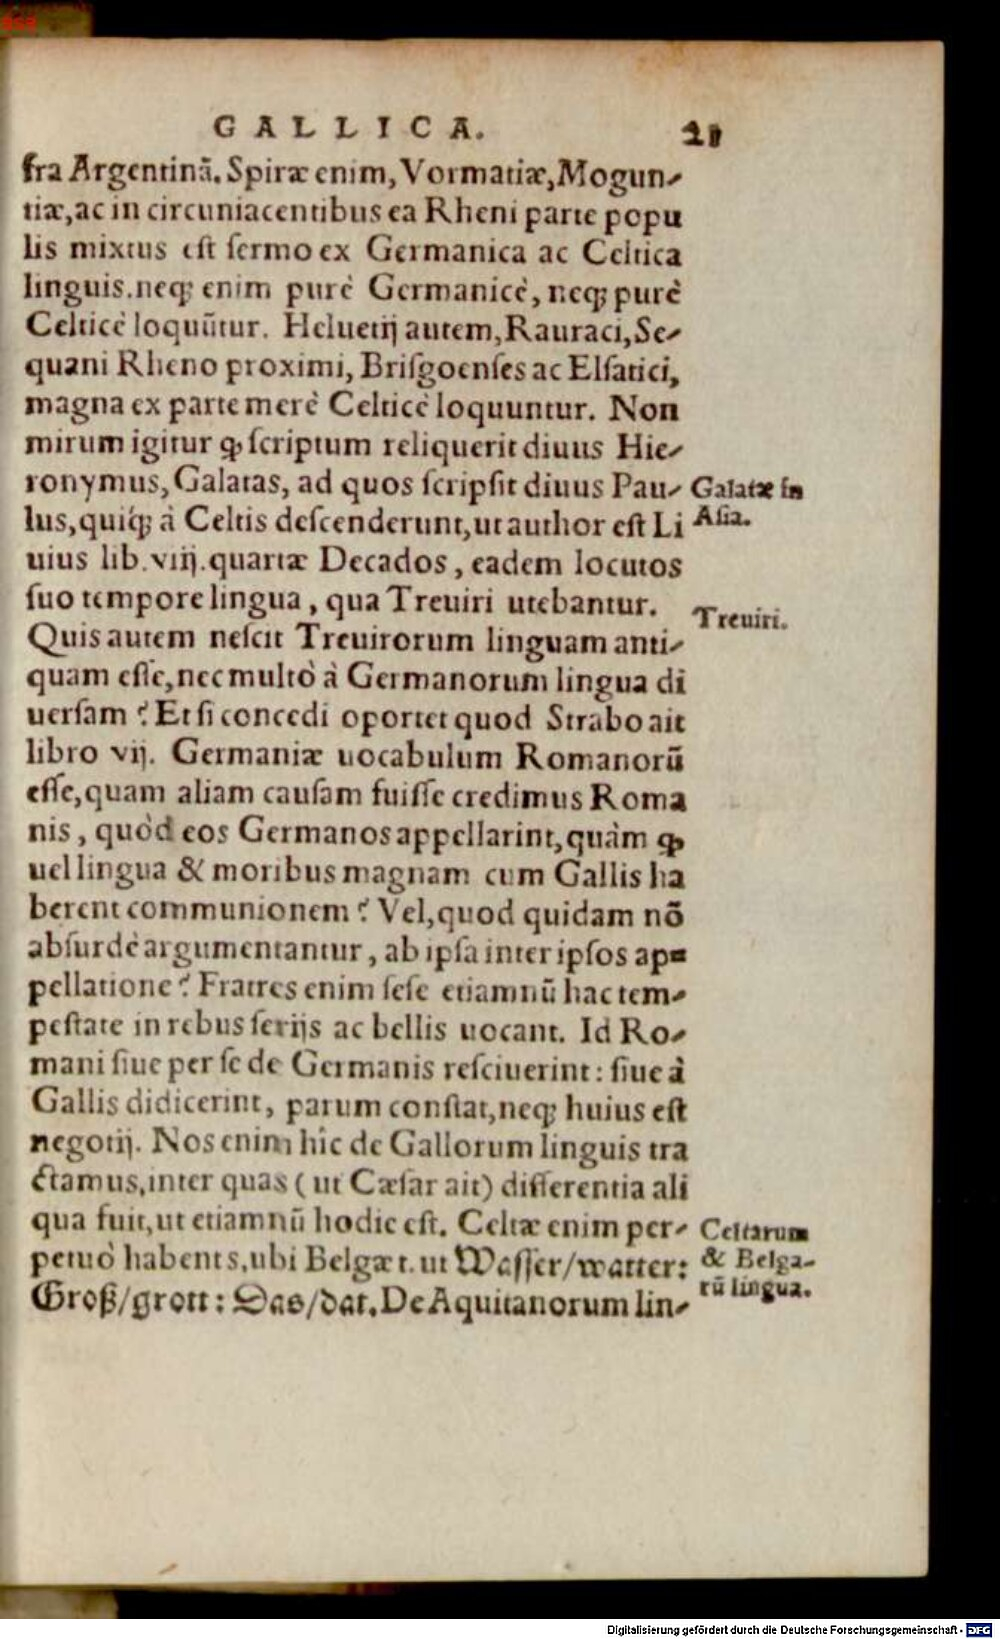 GALLICA. 21
fra Argentinā. Spiræ enim, Vormatiæ, Mogun-
tiæ, ac in circuniacentibus ea Rheni parte popu
lis mixtus est sermo ex Germanica ac Celtica
linguis. neq; enim purè Germanicè, neq; purè
Celticè loquūtur. Heluetij autem, Rauraci, Se-
quani Rheno proximi, Brisgoenses ac Elsatici,
magna ex parte merè Celticè loquuntur. Non
mirum igitur ꝙ scriptum reliquerit diuus Hie-
ronymus, Galatas, ad quos scripsit diuus Pau-
Galatæ in
lus, quiq́; à Celtis descenderunt, ut author est Li
Asia.
uius lib. viij. quartæ Decados, eadem locutos
suo tempore lingua, qua Treuiri utebantur.
Treuiri.
Quis autem nescit Treuirorum linguam anti-
quam esse, nec multò à Germanorum lingua di
uersam? Et si concedi oportet quod Strabo ait
libro vij. Germaniæ uocabulum Romanorū
esse, quam aliam causam fuisse credimus Roma
nis, quòd eos Germanos appellarint, quàm ꝙ
uel lingua & moribus magnam cum Gallis ha
berent communionem? Vel, quod quidam nō
absurdè argumentantur, ab ipsa inter ipsos ap-
pellatione? Fratres enim sese etiamnū hac tem-
pestate in rebus serijs ac bellis uocant. Id Ro-
mani siue per se de Germanis resciuerint: siue à
Gallis didicerint, parum constat, neq; huius est
negotij. Nos enim hîc de Gallorum linguis tra
ctamus, inter quas (ut Cæsar ait) differentia ali
qua fuit, ut etiamnū hodie est. Celtæ enim per-
Celtarum
petuò habent s, ubi Belgæ t. ut Wasser/watter:
& Belga-
Groß/grott: Das/dat. De Aquitanorum lin-
rū lingua.
Digitalisierung gefördert durch die Deutsche Forschungsgemeinschaft - DFG